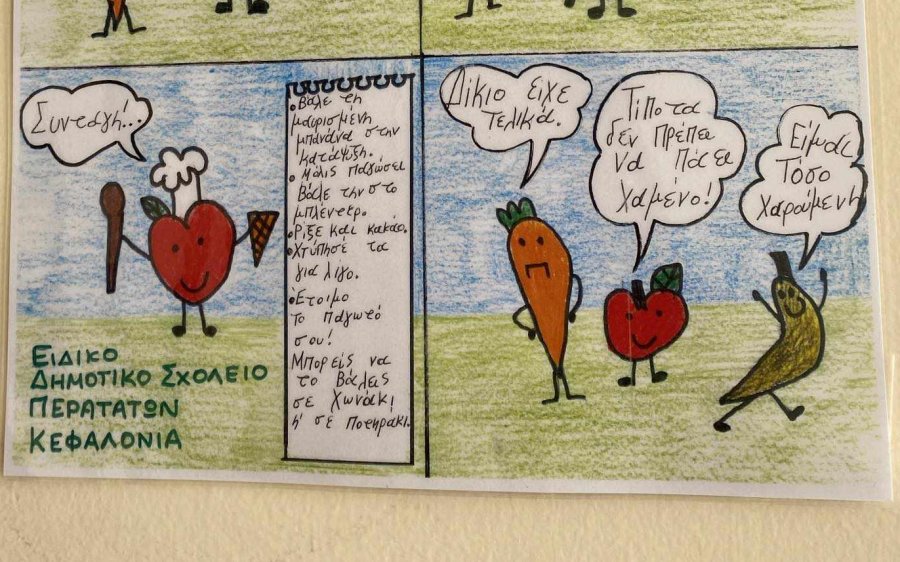 Συνταγή...
• Βάλε τη
μαυρισμένη
μπανάνα στην
κατάψυξη.
• Μόλις παγώσει
βάλε την στο
μπλέντερ.
• Ρίξε και κακάο.
• Χτύπησέ τα
για λίγο.
• Έτοιμο
το παγωτό
σου!
Μπορείς να
το βάλεις
σε χωνάκι
ή σε ποτηράκι.
ΕΙΔΙΚΟ
ΔΗΜΟΤΙΚΟ ΣΧΟΛΕΙΟ
ΠΕΡΑΤΑΤΩΝ
ΚΕΦΑΛΟΝΙΑ
Δίκιο είχε
τελικά.
Τίποτα
δεν πρέπει
να πάει
χαμένο!
Είμαι
τόσο
χαρούμενη